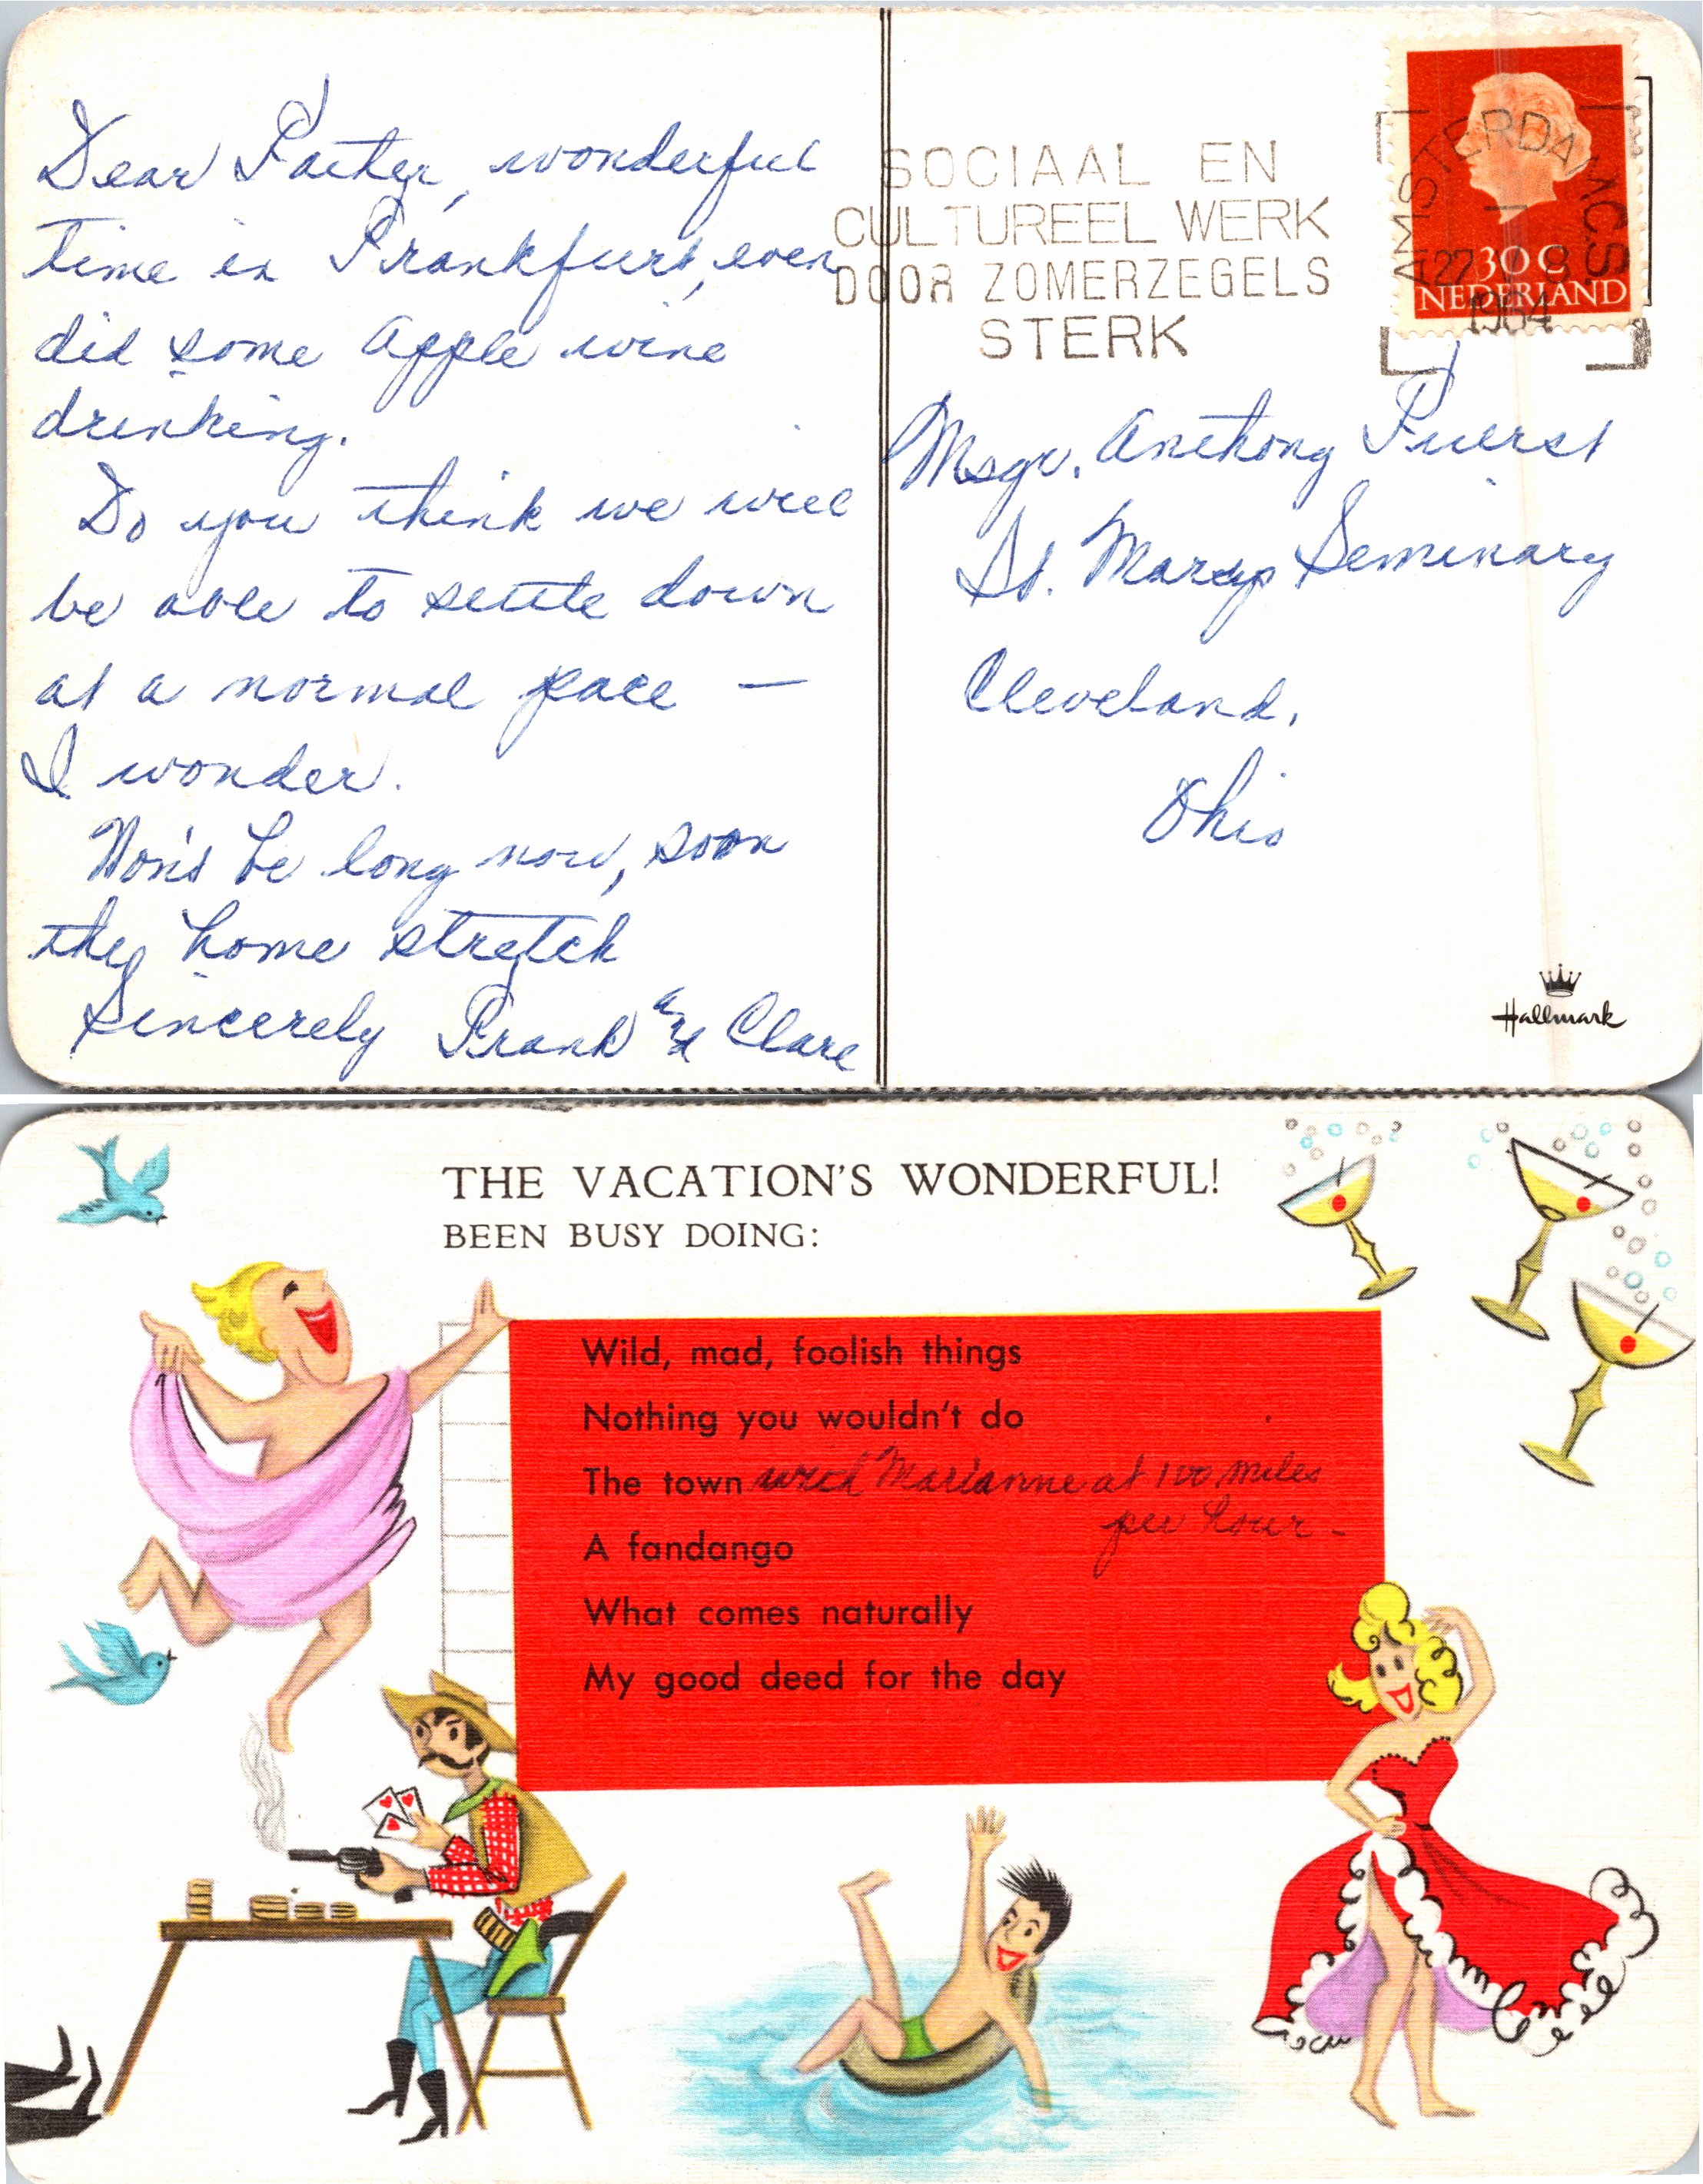 Dear Father, wonderful
time in Frankfurt, even
did some apple wine
drinking.
Do you think we will
be able to settle down
at a normal pace —
I wonder.
Won't be long now, soon
the home stretch
Sincerely Frank and Clare
SOCIAAL EN
CULTUREEL WERK
DOOR ZOMERZEGELS
STERK
AMSTERDAM C.S.
27 8
1964
30 C
NEDERLAND
Msgr. Anthony Fuerst
St. Marys Seminary
Cleveland,
Ohio
Hallmark
THE VACATION'S WONDERFUL!
BEEN BUSY DOING:
Wild, mad, foolish things
Nothing you wouldn't do
The town with Marianne at 100 miles
per hour -
A fandango
What comes naturally
My good deed for the day